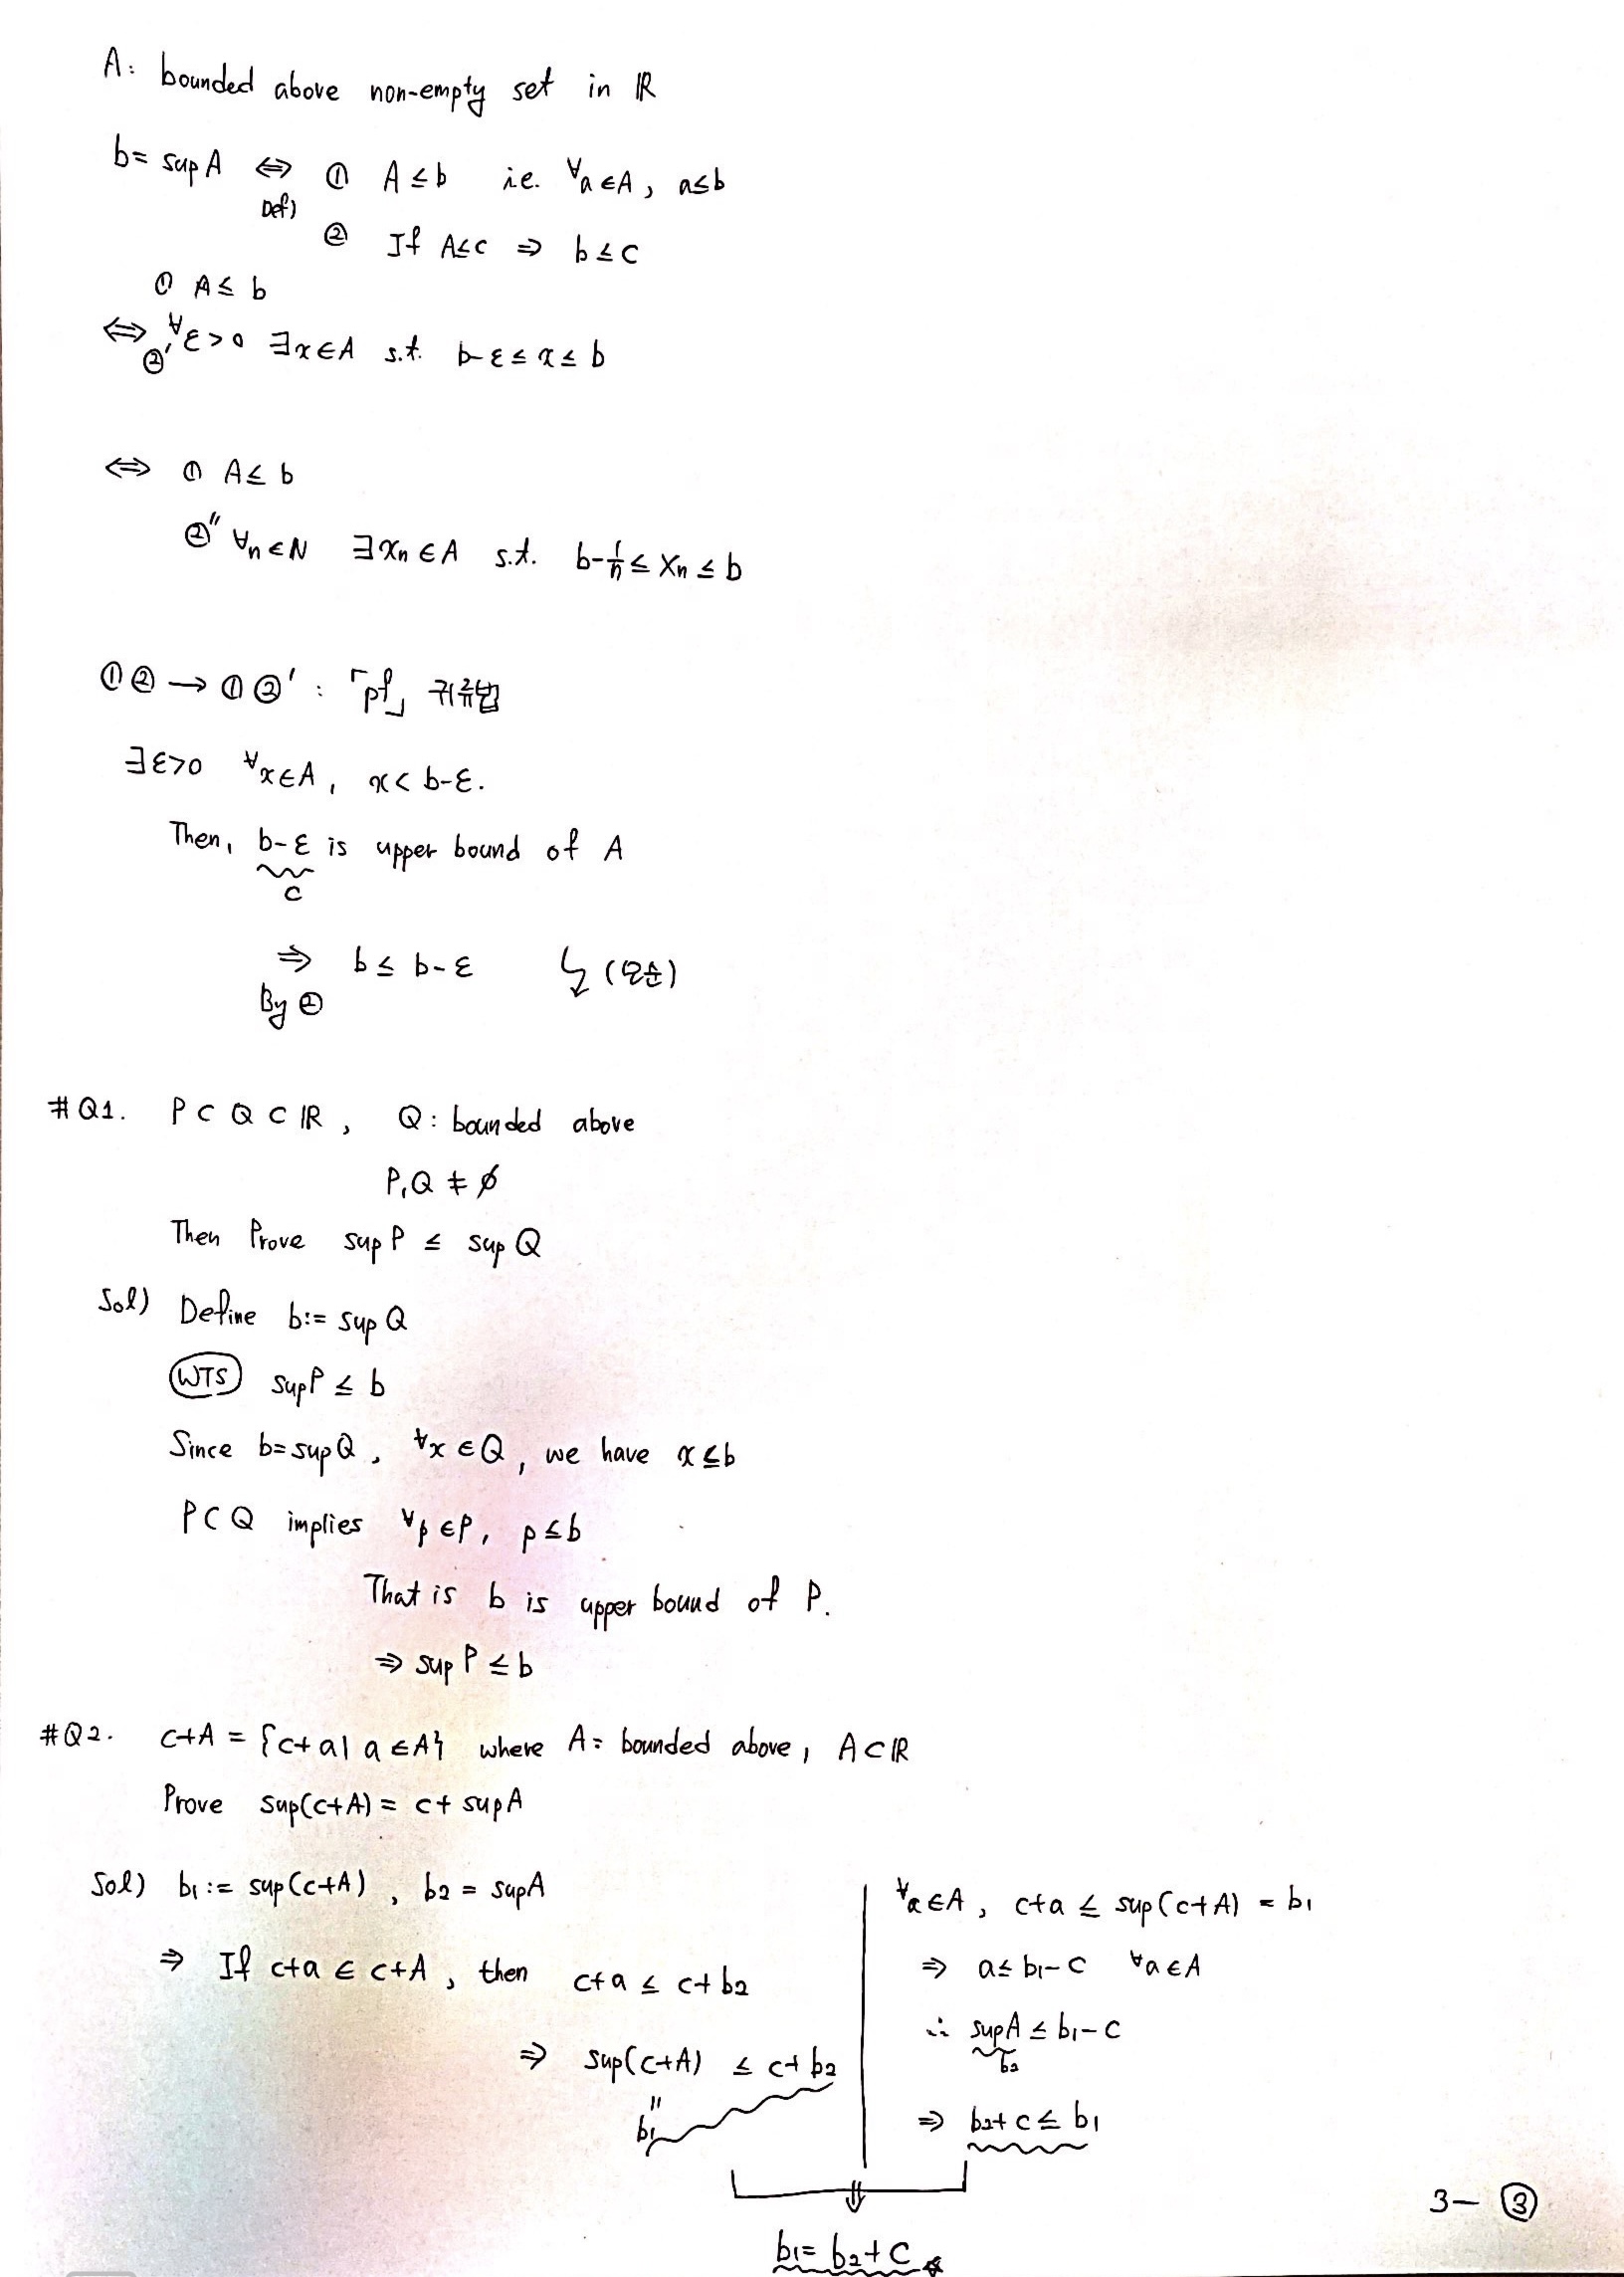 A: bounded above non-empty set in ℝ
b = sup A ⇔ ① A ≤ b i.e. ∀a ∈ A, a ≤ b
Def)
② If A ≤ c ⇒ b ≤ c
① A ≤ b
⇔ ②' ∀ε > 0 ∃x ∈ A s.t. b-ε ≤ x ≤ b
⇔ ① A ≤ b
②'' ∀n ∈ N ∃xn ∈ A s.t. b-1/n ≤ xn ≤ b
①② → ①②' : 「pf」 귀류법
∃ε>0 ∀x ∈ A, x < b-ε.
Then, b-ε is upper bound of A
c
⇒ b ≤ b-ε ↯ (모순)
By ②
#Q1. P ⊂ Q ⊂ ℝ, Q: bounded above
P, Q ≠ ∅
Then Prove sup P ≤ sup Q
Sol) Define b := sup Q
WTS sup P ≤ b
Since b = sup Q, ∀x ∈ Q, we have x ≤ b
P ⊂ Q implies ∀p ∈ P, p ≤ b
That is b is upper bound of P.
⇒ sup P ≤ b
#Q2. c+A = {c+a | a ∈ A} where A: bounded above, A ⊂ ℝ
Prove sup(c+A) = c + sup A
Sol) b1 := sup(c+A), b2 = sup A
⇒ If c+a ∈ c+A, then c+a ≤ c+b2
⇒ sup(c+A) ≤ c+b2
"
b1
∀a ∈ A, c+a ≤ sup(c+A) = b1
⇒ a ≤ b1-c ∀a ∈ A
∴ sup A ≤ b1-c
b2
⇒ b2+c ≤ b1
⇓
b1 = b2+c
3- ③